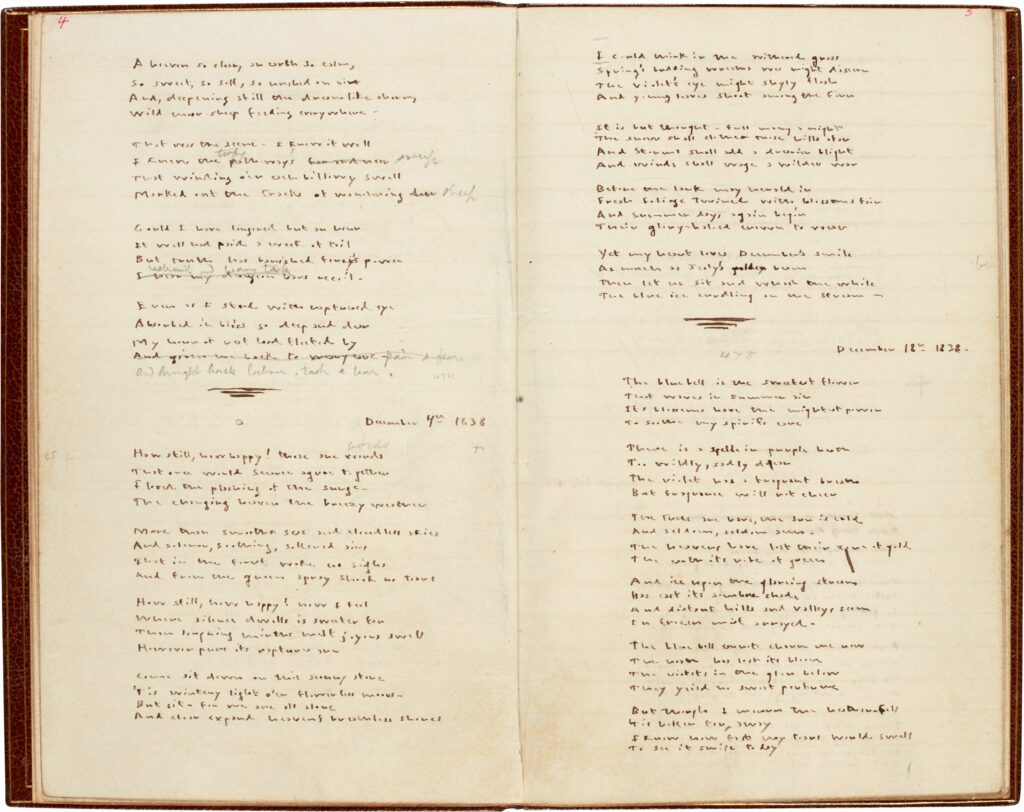 4
A heaven so clear, an earth so calm,
So sweet, so soft, so hushed an air
And, deepening still the dreamlike charm,
Wild moor-sheep feeding everywhere -
That was the scene - I knew it well
turfy
I knew the path-ways far and near sweep
That winding o'er each billowy swell
Marked out the tracks of wandering deer sheep
Could I have lingered but an hour
It well had paid a week of toil
But truth has banished fancy's power
restraint and heavy task
I hear my dungeon bars recoil -
Even as I stood with raptured eye
Absorbed in bliss so deep and dear
My hour of rest had fleeted by
And given me back to weary care
And brought back labour,
December 4th 1838
words
How still, how happy! those are words
That once would scarce agree together
I loved the plashing of the surge -
The changing heaven the breezy weather
More than smooth seas and cloudless skies
And solemn, soothing, softened airs
That in the forest woke no sighs
And from the green spray shook no tears
How still, how happy! now I feel
Where silence dwells is sweeter far
Than laughing mirth's most joyous swell
However pure its raptures are
Come sit down on this sunny stone
'Tis wintery light o'er flowerless moors -
But sit - for we are all alone
And clear expand heaven's breathless shores
5
I could think in the withered grass
Spring's budding wreaths we might discern
The violet's eye might shyly flash
And young leaves shoot among the fern
It is but thought - full many a night
The snow shall clothe those hills afar
And Storms shall add a drearier blight
And winds shall wage a wilder war
Before the lark may herald in
Fresh foliage twined with blossoms fair
And summer days again begin
Their glory-haloed crown to wear
Yet my heart loves December's smile
As much as July's golden beam
Then let us sit and watch the while
The blue ice curdling on the stream -
December 18th 1838.
The blue bell is the sweetest flower
That waves in summer air
Its blossoms have the mightiest power
To soothe my spirit's care
There is a spell in purple heath
Too wildly, sadly dear
The violet has a fragrant breath
But fragrance will not cheer
The trees are bare, the sun is cold
And seldom, seldom seen -
The heavens have lost their zone of gold
The earth its robe of green
And ice upon the glancing stream
Has cast its sombre shade
And distant hills and valleys seem
In frozen mist arrayed -
The blue bell cannot charm me now
The heath has lost its bloom
The violets in the glen below
They yield no sweet perfume
But though I mourn the heather-bell
'Tis better far, away
I know how fast my tears would swell
To see it smile today